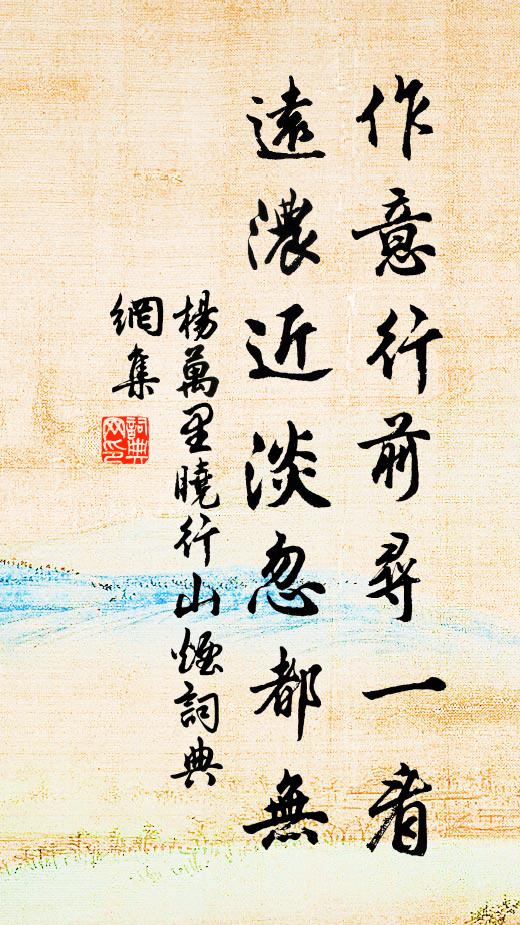 作意行前尋一看
遠濃近淡忽都無
楊萬里曉行山煙詞典
網集
詞典
网印